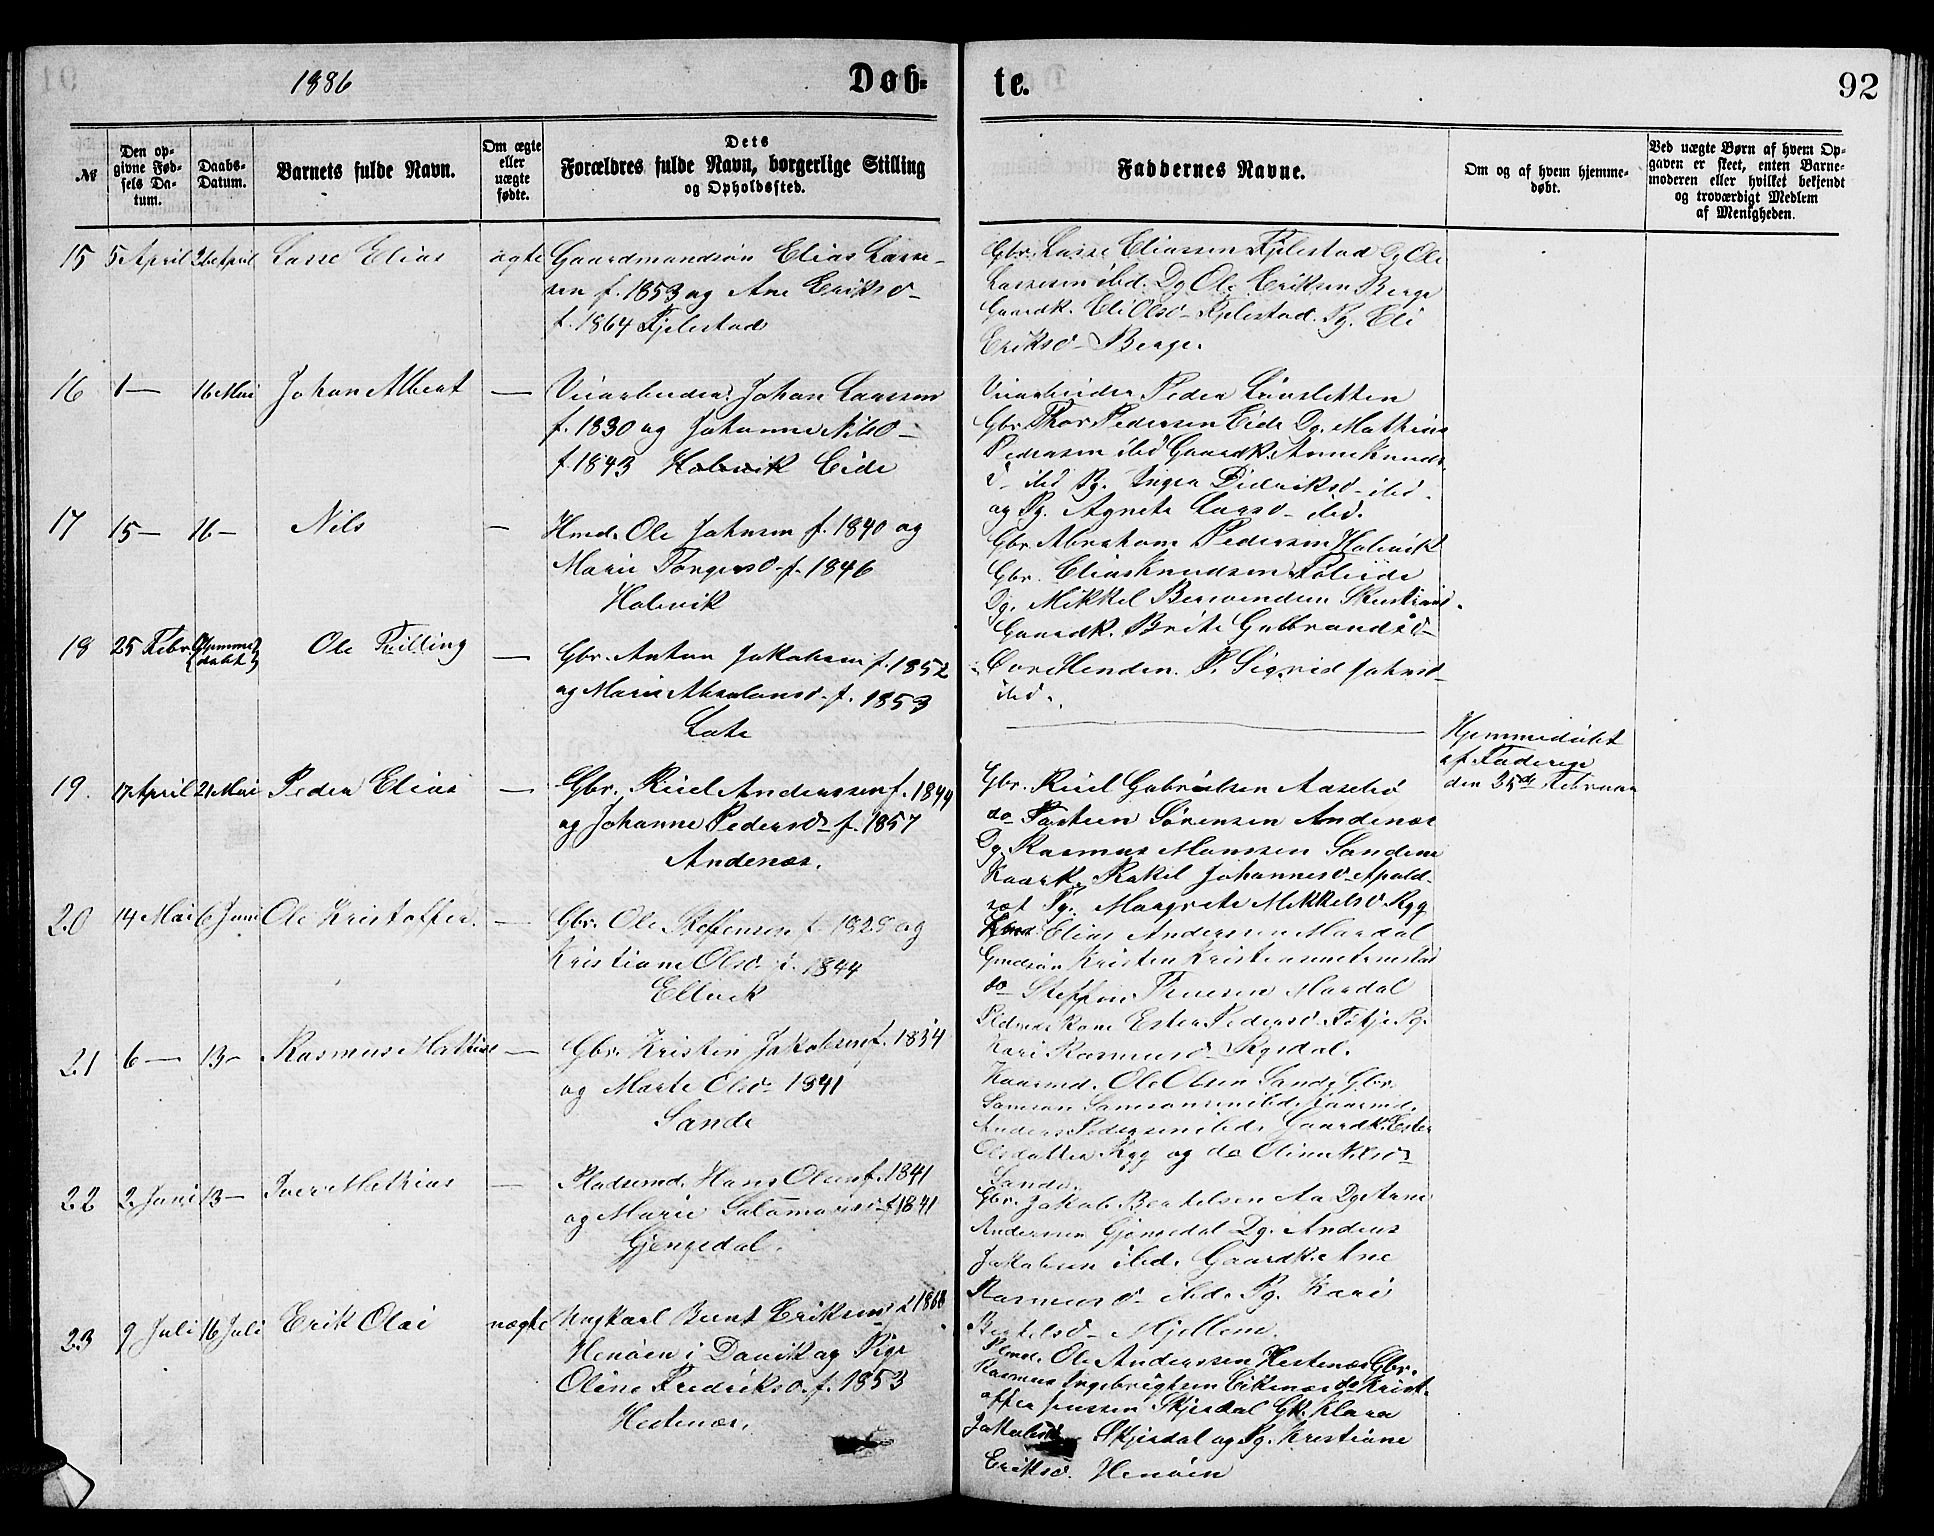 1886
Døb-
te.
92
№
Den op-
givne Fød-
sels Da-
tum.
Daabs-
Datum.
Barnets fulde Navn.
Om ægte
eller
uægte
fødte.
Dets
Forældres fulde Navn, borgerlige Stilling
og Opholdssted.
Faddernes Navne.
Om og af hvem hjemme-
døbt.
Ved uægte Børn af hvem Op-
gaven er skeet, enten Barne-
moderen eller hvilket bekjendt
og troværdigt Medlem
af Menigheden.
15 5 April 26 April Lasse Elias ægte Gaardmandsøn Elias Lasse-
sen f. 1853 og Ane Eriksd-
f. 1864 Fjelestad
Gbr. Lasse Eliassen Fjelestad Dg Ole
Lassesen ibd. Dg Ole Eriksen Berge
Gaardk. Eli Olsd- Fjelestad. Pg. Eli
Eriksd- Berge.
16 1 — 16 Mai Johan Albert — Veiarbeider Johan Larssen
f. 1830 og Johanne Nilsd-
f. 1843 Holevik Eide
Veiarbeider Peder
Gbr. Thor Pedersen Eide Dg. Mathias
Pedersen ibd Gaardk. Anne Knuds
d- ibd Pg. Inger Didriksd- ibd.
og Pg. Agnete Larsd- ibd.
17 15 — 16 — Nils — Hmd. Ole Johnsen f. 1840 og
Marie Torgersd- f. 1846
Holevik
Gbr. Abraham Pedersen Holevik
Gbr. Elias Knudsen
Dg. Mikkel
Gaardk. Brite Gulbrandsd-
Henden. P. Sigrid Johnsd-
ibd.
18 25 Febr. Hjemme
døbt Ole Filling — Gbr. Anton Jakobsen f. 1852
og Marie Absalonsd- f. 1853
Lote
Hjemmedøbt
af Faderen
den 25de Februar
19. 17 April 21 Mai Peder Elias — Gbr. Anderssen f. 1844
og Johanne Pedersd- f. 1857
Andenæs.
Gbr. Gabrielsen Aasebø
do Sørensen Andenæs
Dg. Rasmus Monssen Sandene
Kaark. Rakel Johannesd- Apald-
sæt Pg. Margrete Mikkelsd- Ryg
20 14 Mai 6 Juni Ole Kristoffer. — Gbr. Ole Steffensen f. og
Kristiane Olsd- f. 1844
Elvik
Elias Anderssen Mardal
Gmdsøn Kristen
do Steffen Mardal
Ester Pedersd- Pg.
Kari Rasmusd- Rygdal.
21 6 — 13 — Rasmus Mathias — Gbr. Kristen Jakobsen f. 1834
og Marte Olsd- 1841
Sande
Kaarmd. Ole Olsen Sande Gbr.
Samson Samsonsen ibd. Kaarmd.
Anders Pedersen ibd. Gaardk. Ester
Olsdatter Ryg og do Oline Nilsd-
Sande.
22 2 Juni 13 — Iver Mathias — Pladsmd. Hans Olsen f. 1841
og Marie Salamonsd- f. 1841
Gjengedal.
Gbr. Jakob Bertelsen Aa Dg. Arne
Andersen Dg. Anders
Jakobsen ibd. Gaardk. Ane
Rasmusd- ibd. Pg. Kari
Bertelsd- Mjellem.
23 9 Juli 16 Juli Erik Olai uægte Ungkarl Bernt Eriksen f. 1868
Henøen i Davik og Pige
Oline Fredriksd. f. 1853
Hestenæs.
Plmd. Ole Anderssen Hestenæs Gbr.
Rasmus Ingebrigtsen Eikenæs do Krist-
offer Jenssen Skjerdal Gk. Klara
Jakobsd Skjerdal og Pg. Kristiane
Eriksd. Henøen